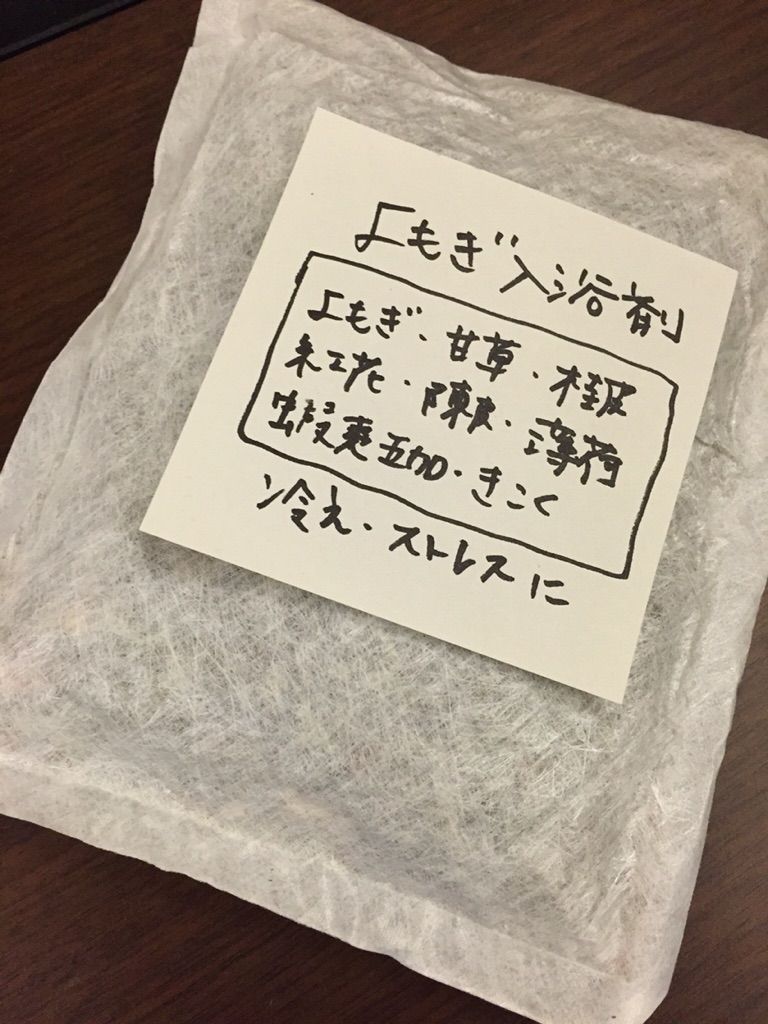 よもぎ入浴剤
よもぎ・甘草・桂皮
紅花・陳皮・薄荷
蝦夷五加・きこく
冷え・ストレスに